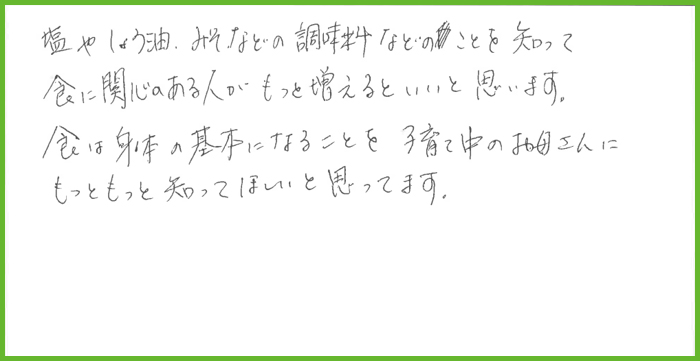 塩やしょう油、みそなどの調味料などのことを知って
食に関心のある人がもっと増えるといいと思います。
食は身体の基本になることを子育て中のお母さんに
もっともっと知ってほしいと思ってます。